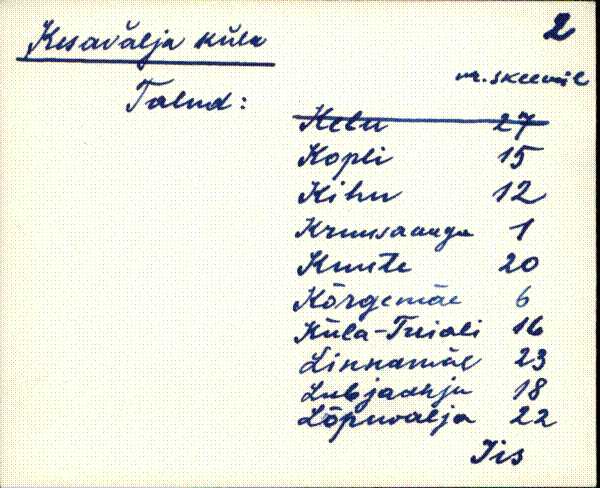 2
Kesavälja küla
nr. skeemil
Talud:
Kelu 27
Kopli 15
Kihu 12
Kruusaaugu 1
Kuuste 20
Kõrgemäe 6
Küla-Triali 16
Linnamäe 23
Lubjaahju 18
Lõpuvälja 22
Jis